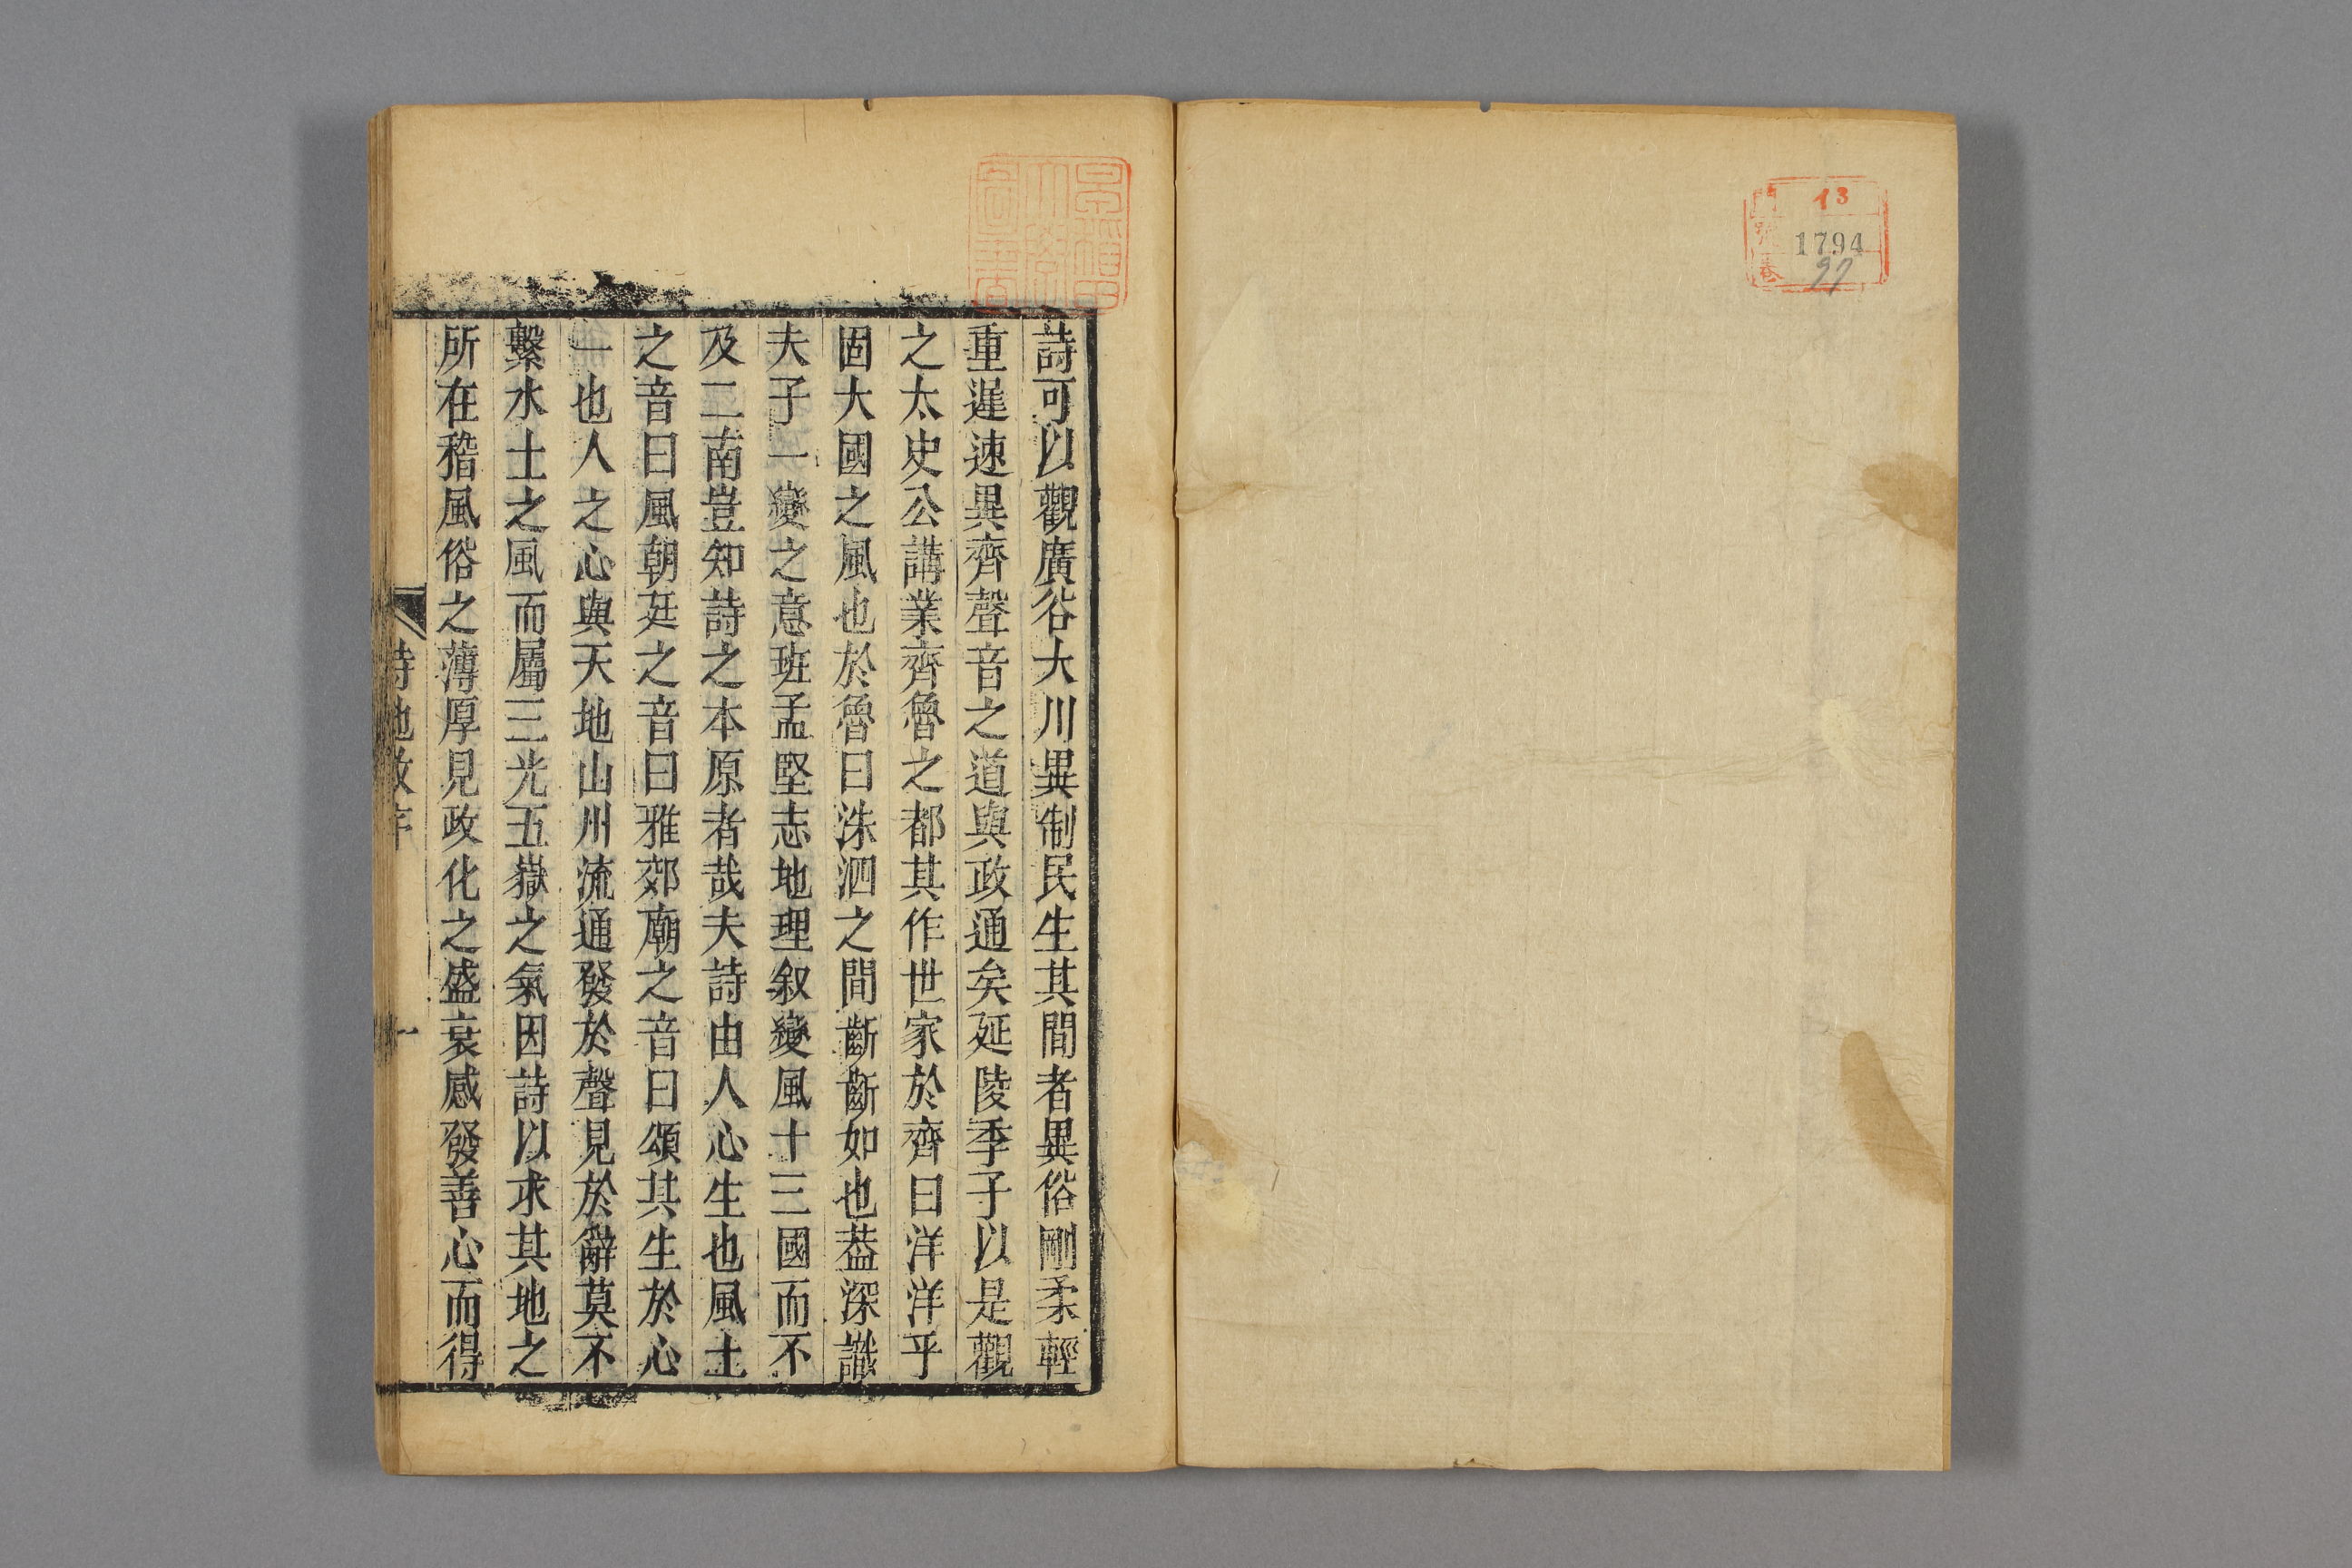 門 13
號 1794
卷 27
早稲田
大學
圖書
詩可以觀廣谷大川異制民生其間者異俗剛柔輕
重遲速異齊聲音之道與政通矣延陵季子以是觀
之太史公講業齊魯之都其作世家於齊曰洋洋乎
固大國之風也於魯曰洙泗之間齗齗如也葢深識
夫子一變之意班孟堅志地理叙變風十三國而不
及二南豈知詩之本原者哉夫詩由人心生也風土
之音曰風朝廷之音曰雅郊廟之音曰頌其生於心
一也人之心與天地山川流通發於聲見於辭莫不
繫水土之風而屬三光五嶽之氣因詩以求其地之
所在稽風俗之薄厚見政化之盛衰感發善心而得
詩地攷序
一